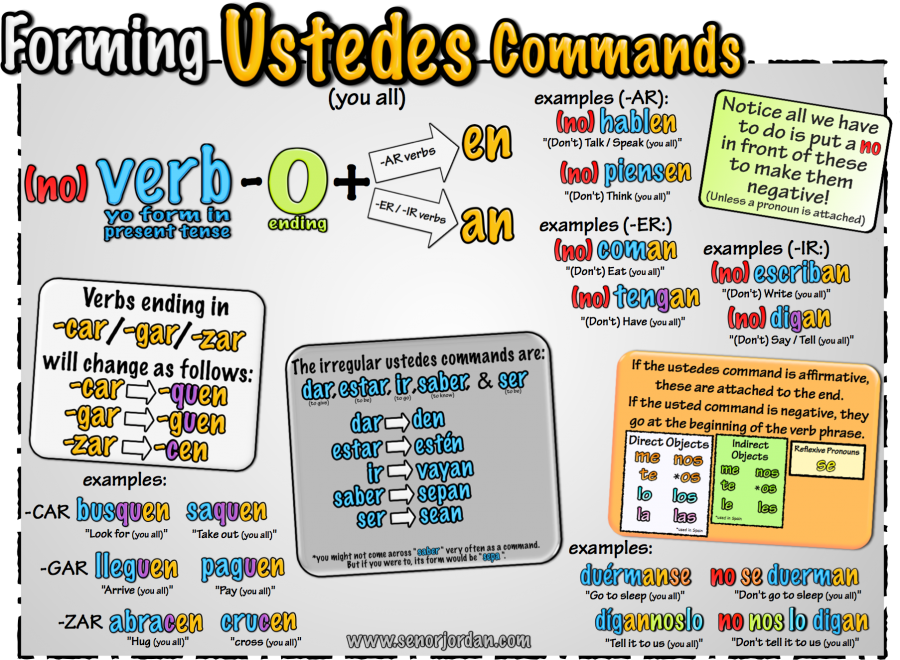 Forming Ustedes Commands
(you all)
(no) verb - O + 
yo form in
present tense
ending
-AR verbs
en
-ER / -IR verbs
an
examples (-AR):
(no) hablen
"(Don't) Talk / Speak (you all)"
(no) piensen
"(Don't) Think (you all)"
Notice all we have
to do is put a no
in front of these
to make them
negative!
(Unless a pronoun is attached)
examples (-ER:)
(no) coman
"(Don't) Eat (you all)"
(no) tengan
"(Don't) Have (you all)"
examples (-IR:)
(no) escriban
"(Don't) Write (you all)"
(no) digan
"(Don't) Say / Tell (you all)"
Verbs ending in
-car/-gar/-zar
will change as follows:
-car -quen
-gar -guen
-zar -cen
examples:
-CAR busquen saquen
"Look for (you all)" "Take out (you all)"
-GAR lleguen paguen
"Arrive (you all)" "Pay (you all)"
-ZAR abracen crucen
"Hug (you all)" "cross (you all)"
The irregular ustedes commands are:
dar, estar, ir, saber, & ser
(to give) (to be) (to go) (to know) (to be)
dar den
estar estén
ir vayan
saber sepan
ser sean
*you might not come across "saber" very often as a command.
But if you were to, its form would be "sepa".
If the ustedes command is affirmative,
these are attached to the end.
If the usted command is negative, they
go at the beginning of the verb phrase.
Direct Objects
me nos
te *os
lo los
la las
*used in Spain
Indirect
Objects
me nos
te *os
le les
*used in Spain
Reflexive Pronouns
se
examples:
duérmanse no se duerman
"Go to sleep (you all)" "Don't go to sleep (you all)"
dígannoslo no nos lo digan
"Tell it to us (you all)" "Don't tell it to us (you all)"
www.senorjordan.com